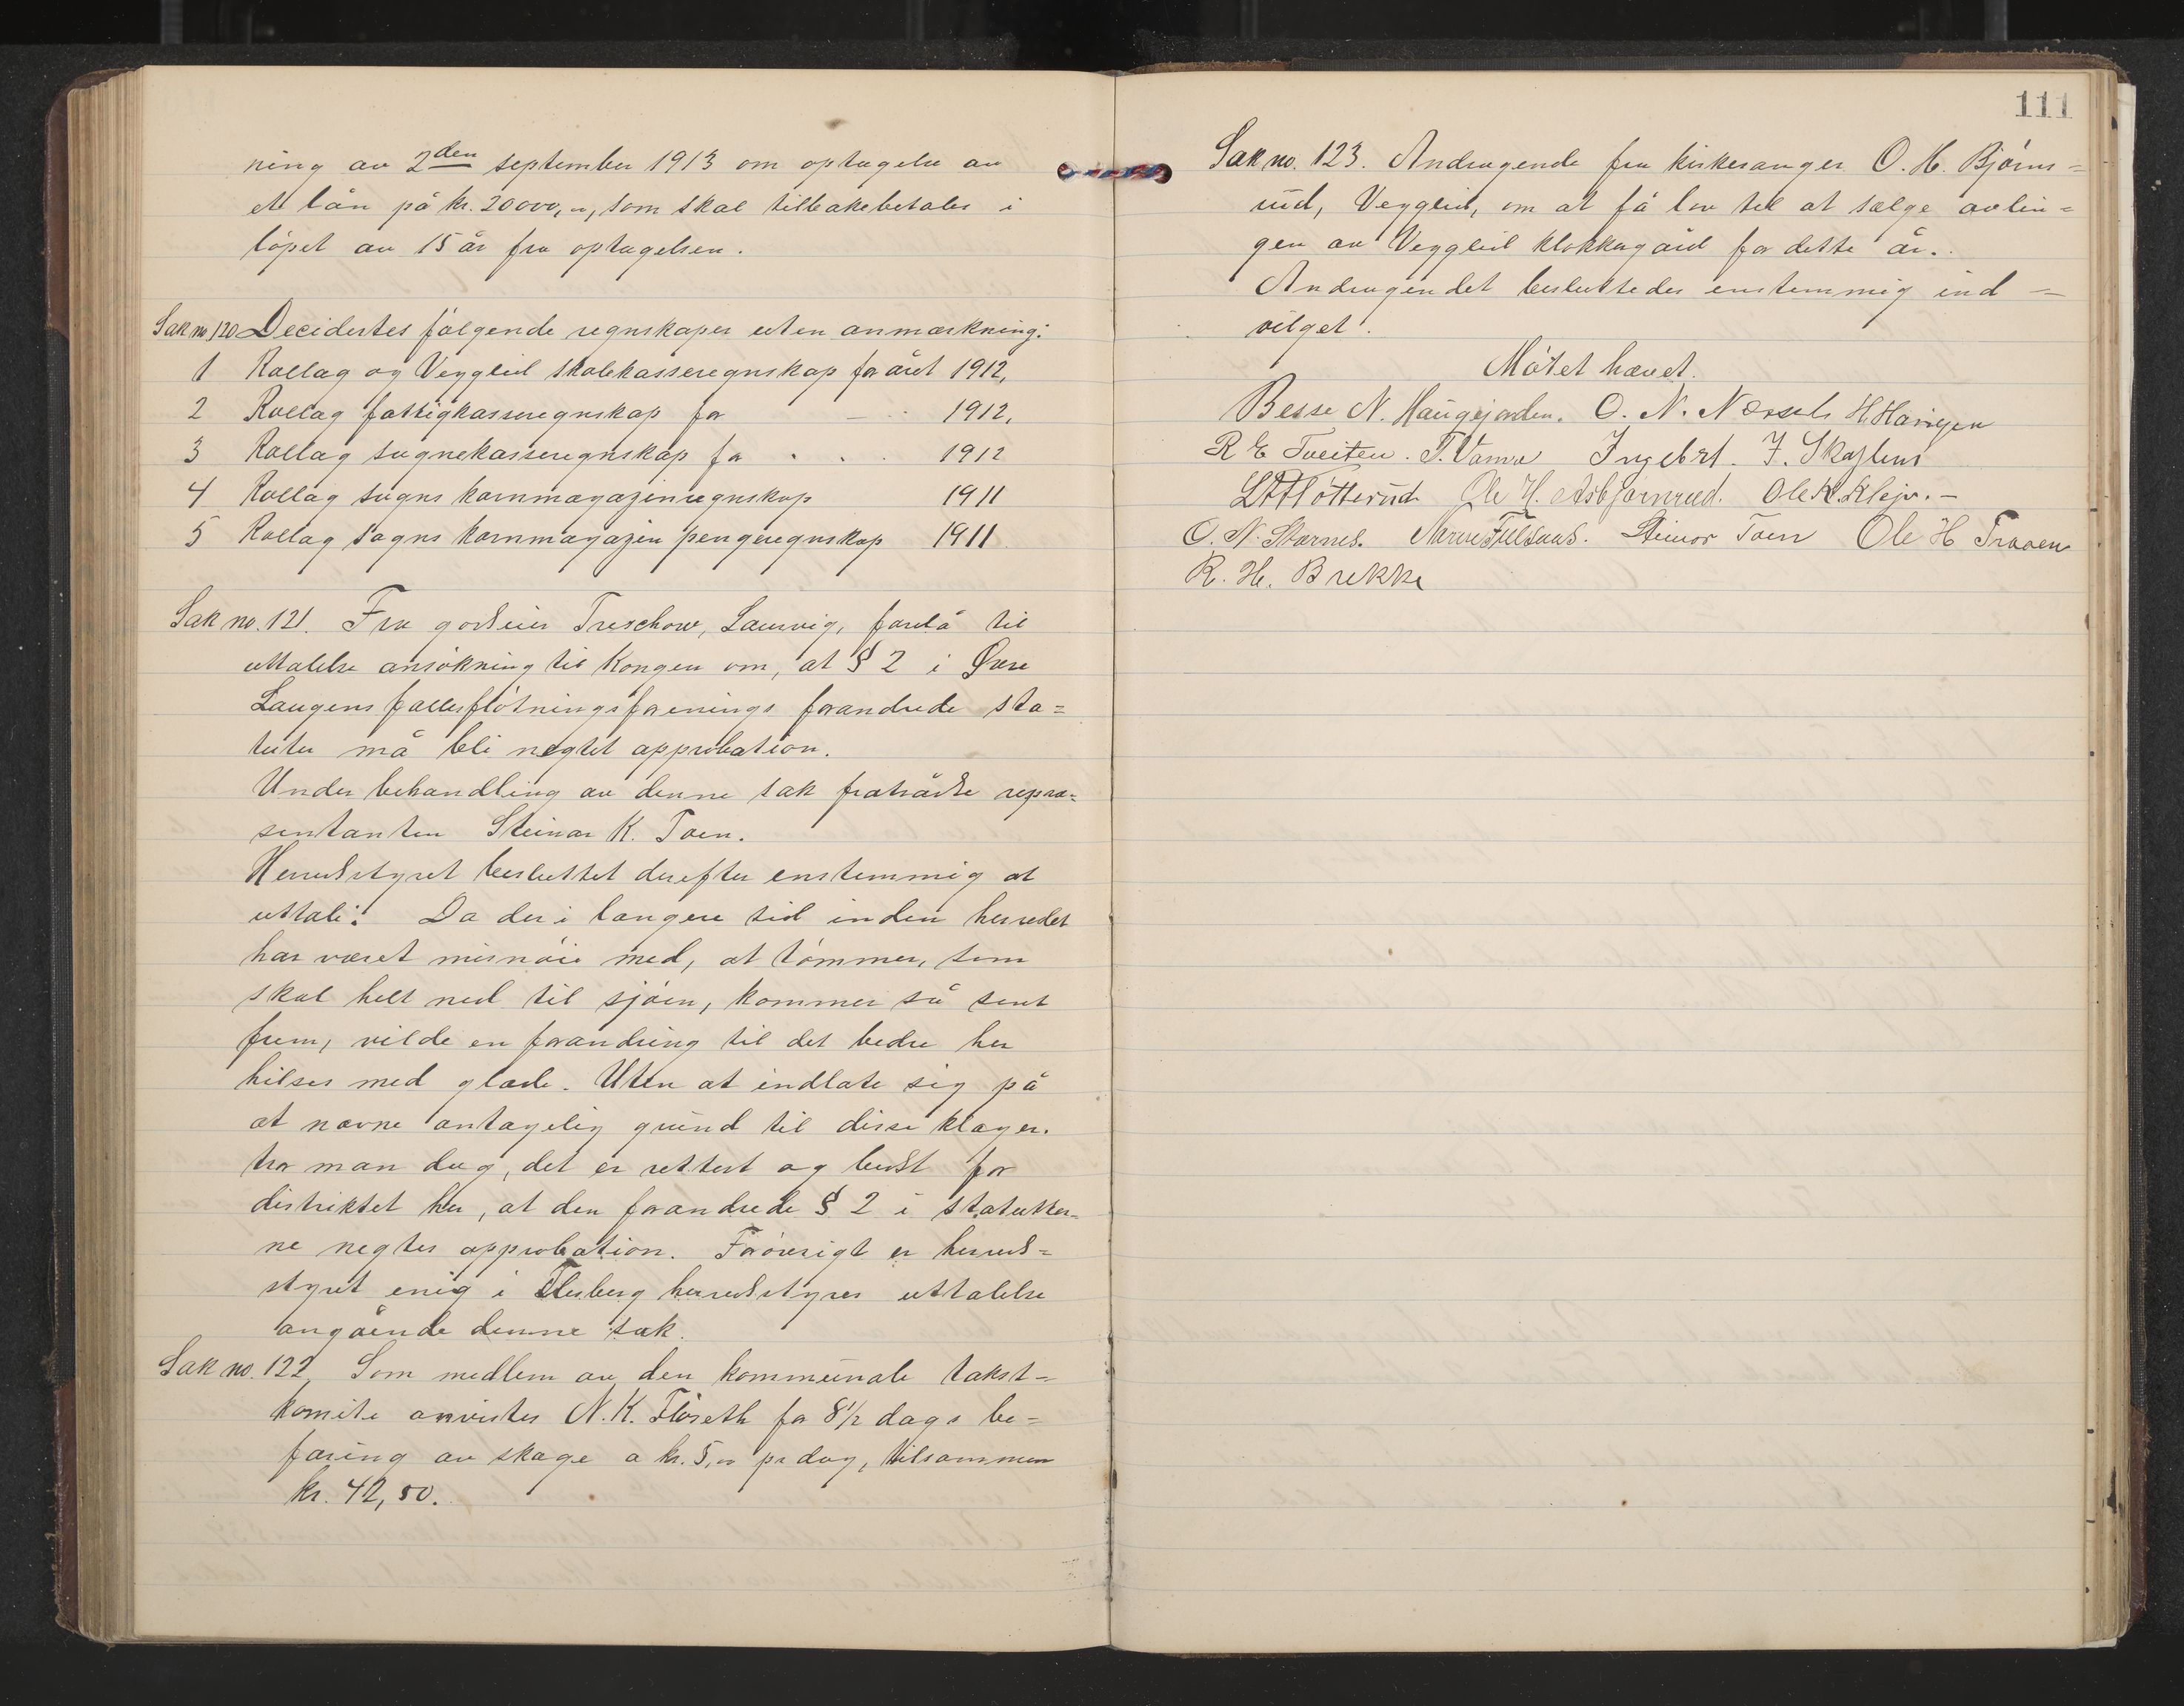 ning av 2den september 1913 om optagelse av
et lån på kr. 20000,,, som skal tilbakebetales i
løpet av 15 år fra optagelsen.
Sak no 120 Decidertes følgende regnskaper uten anmærkning:
1 Rollag og Veggli skolekasseregnskap for året 1912,
2 Rollag fattigkasseregnskap for — " 1912,
3 Rollag sognekasseregnskap for " " 1912
4 Rollag sogns kornmagazinregnskap 1911
5 Rollag sogns kornmagazin pengeregnskap 1911
Sak no. 121. Fra godseier Treschow, Laurvig, forelå til
uttalelse ansökning til Kongen om, at § 2 i Øvre
Laugens fællesflötningsforenings forandrede sta=
tuter må bli negtet approbation.
Under behandling av denne sak fratrådte repræ=
sentanten Steinar K. Toen.
Herredsstyret besluttet derefter enstemmig at
uttale: Da der i længere tid inden herredet
har været misnöie med, at tömmer, som
skal helt ned til sjöen, kommer så sent
frem, vilde en forandring til det bedre her
hilses med glæde. Uten at indlate sig på
at nævne antagelig grund til disse klager.
tror man dog, det er rettest og bedst for
distriktet her, at den forandrede § 2 i statutter=
ne negtes approbation. Forövrigt er herreds=
styret enig i Flesberg herredsstyres uttalelse
angående denne sak.
Sak no. 122. Som medlem av den kommunale takst=
komite anvistes N. K. Flöseth for 8 1/2 dags be=
faring av skoge a kr. 5,,, pr dag, tilsammen
kr. 42,50.
111
Sak no. 123. Andragende fra kirkesanger O. H. Björns=
rud, Veggli, om at få lov til at sælge avlin=
gen av Veggli klokkergård for dette år.
Andragendet besluttedes enstemmig ind=
vilget.
Mötet hævet.
Besse N. Haugejorden. O. N. Nørsteb H Haugen
R E Tveiten. T. Vamra Ingebrt. J. Skajlem
Ole H. Asbjörnrud. Ole K. Kleju.—
O. N. Stærnes. Steinar Toen Ole H Traaen
R. H. Brekke